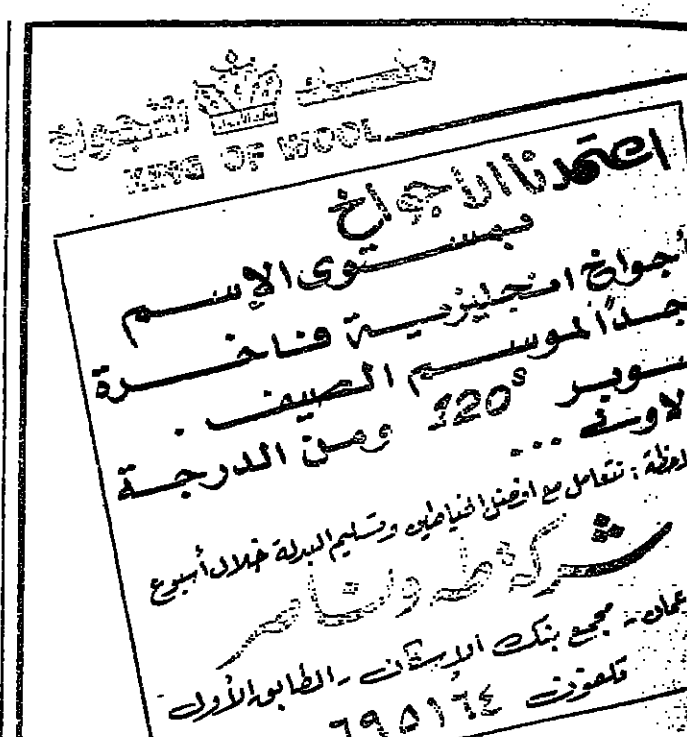 ملك الأجواخ
KING OF WOOL
اعتمدنا الأجواخ
بمستوى الإسم
أجواخ انجليزية فاخرة
جداً لموسم الصيف .
سوبر 120s ومن الدرجة
الاولى ...
ملاحظة : نتعامل مع افضل الخياطين وتسليم البدلة خلال أسبوع
شركة طه وناصر
عمان - مجمع بنك الاسكان - الطابق الأول
تلفون ٦٩٥١٦٤